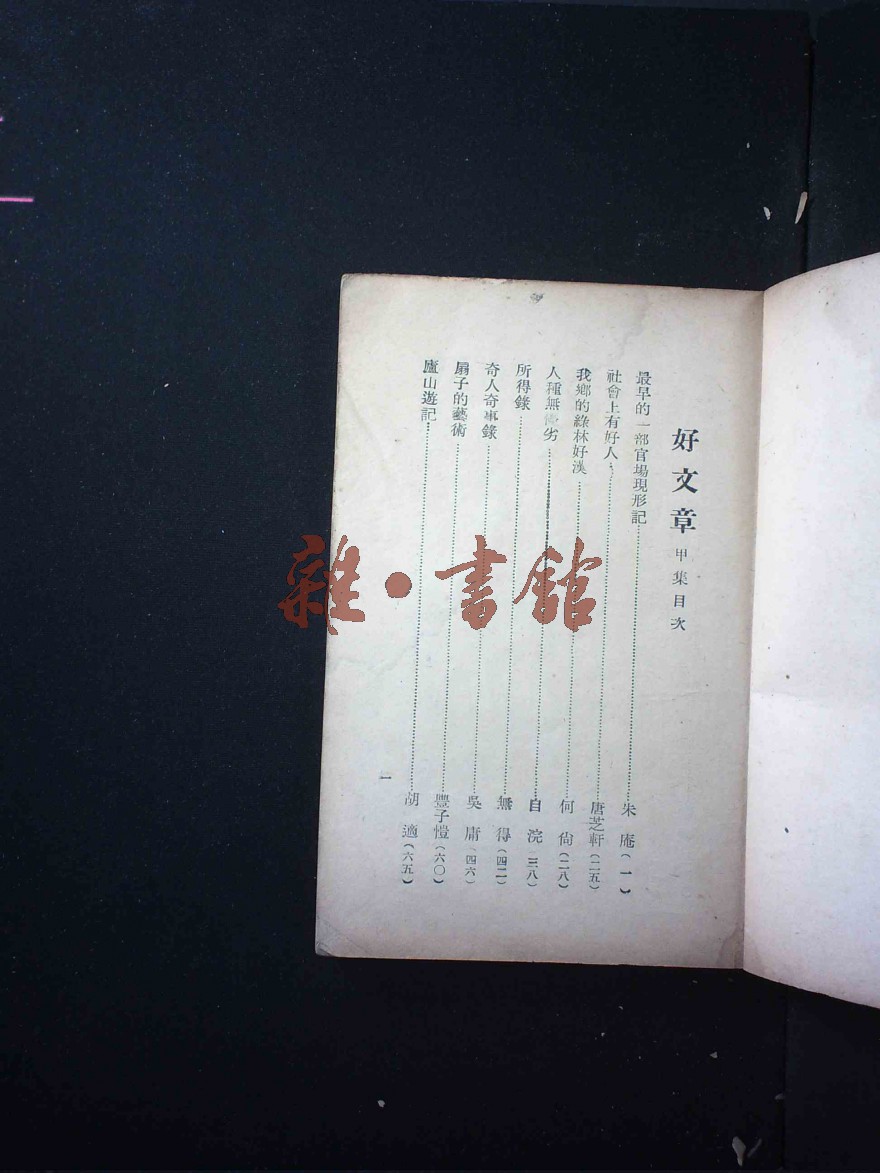 好文章 甲集目次
最早的一部官場現形記 朱庵(一)
社會上有好人 唐芝軒(二五)
我鄉的綠林好漢 何尙(二八)
人種無優劣 自浣(三八)
所得錄 無得(四二)
奇人奇事錄 吳庸(四六)
扇子的藝術 豐子愷(六〇)
廬山遊記 胡適(六五)
一
雜·書館